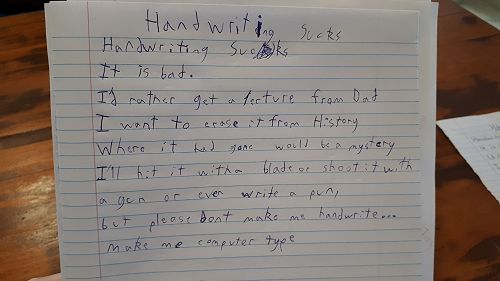 Handwriting Sucks
Handwriting Sucks
It is bad.
I'd rather get a lecture from Dad
I want to erase it from History
Where it had gone would be a mystery
I'll hit it with a blade or shoot it with
a gun or even write a pun,
but please dont make me handwrite...
make me computer type